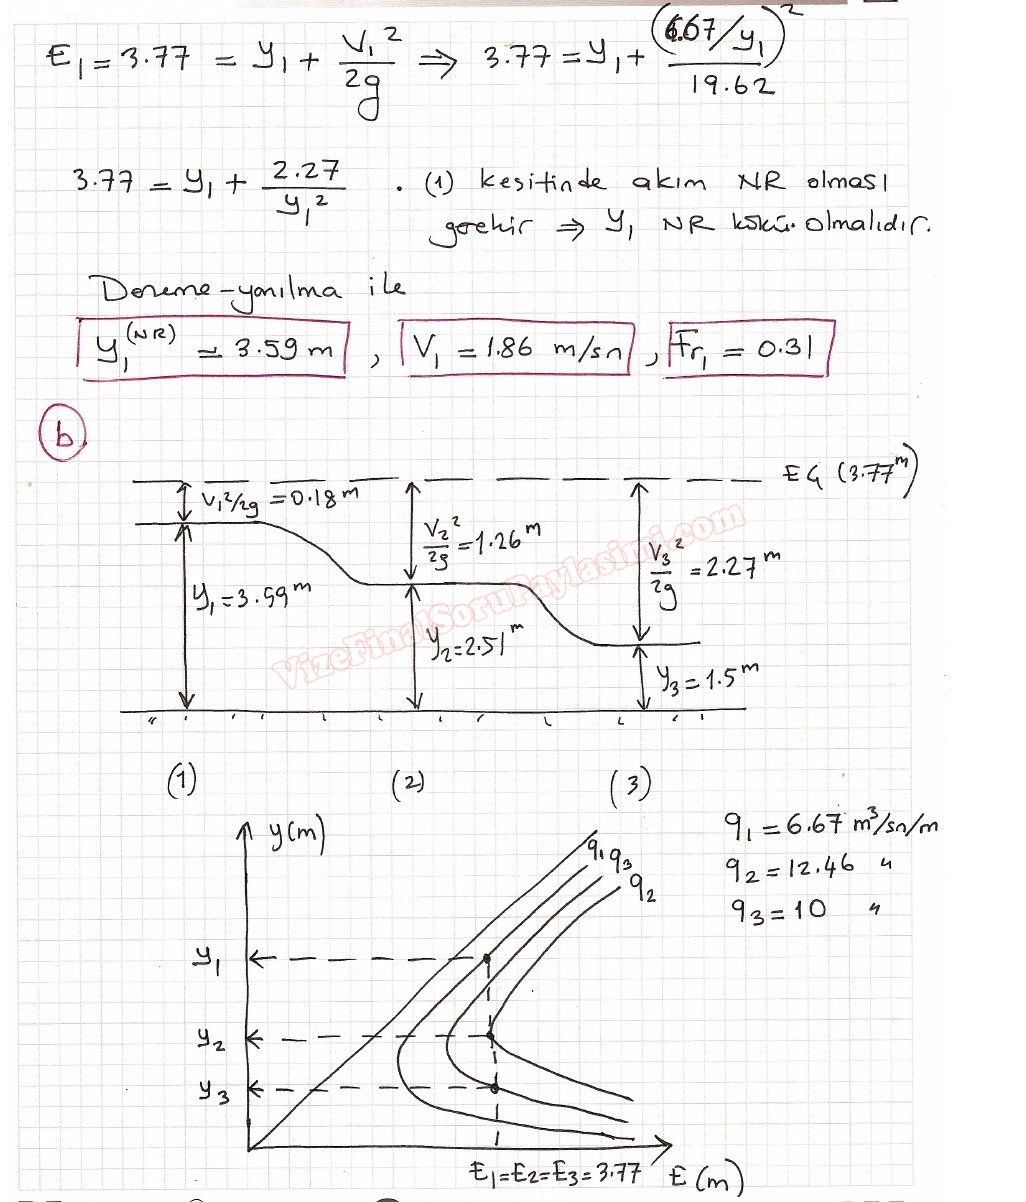 E₁ = 3.77 = y₁ + V₁²/2g ⇒ 3.77 = y₁ + (6.67/y₁)²/19.62
3.77 = y₁ + 2.27/y₁² . (1) kesitinde akım NR olması
gerekir ⇒ y₁ NR kökü olmalıdır.
Deneme-yanılma ile
y₁^(NR) = 3.59 m , V₁ = 1.86 m/sn , Fr₁ = 0.31
b
EÇ (3.77ᵐ)
V₁²/2g = 0.18ᵐ
V₂²/2g = 1.26ᵐ
V₃²/2g = 2.27ᵐ
y₁ = 3.59ᵐ
y₂ = 2.51ᵐ
y₃ = 1.5ᵐ
VizeFinalSoruPaylasimi.com
(1) (2) (3)
y(m)
q₁ q₃
q₂
q₁ = 6.67 m³/sn/m
q₂ = 12.46 "
q₃ = 10 "
y₁
y₂
y₃
E₁=E₂=E₃=3.77 E(m)